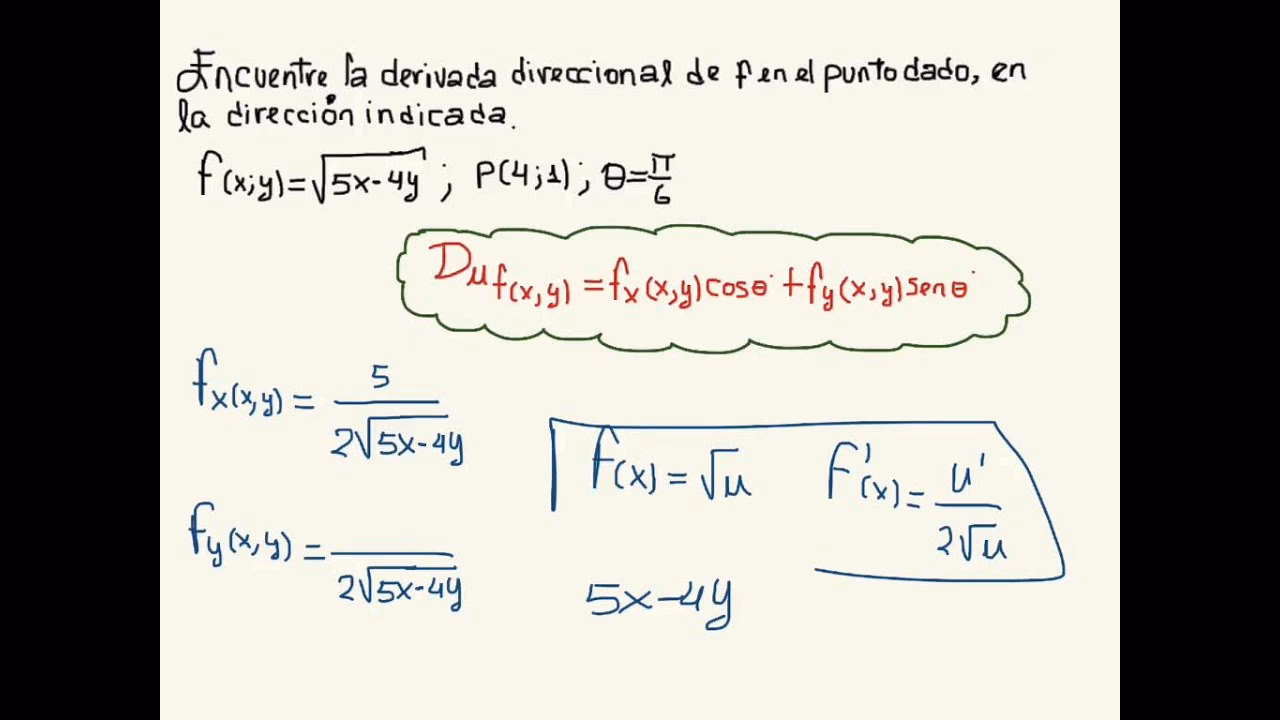 Encuentre la derivada direccional de f en el punto dado, en
la dirección indicada.
f(x;y)=√5x-4y ; P(4;1) ; θ=π/6
Du f(x,y) = fx(x,y) cosθ + fy(x,y) senθ
fx(x,y) = 5/2√5x-4y
f(x) = √u F'(x) = u'/2√u
fy(x,y) = /2√5x-4y
5x-4y